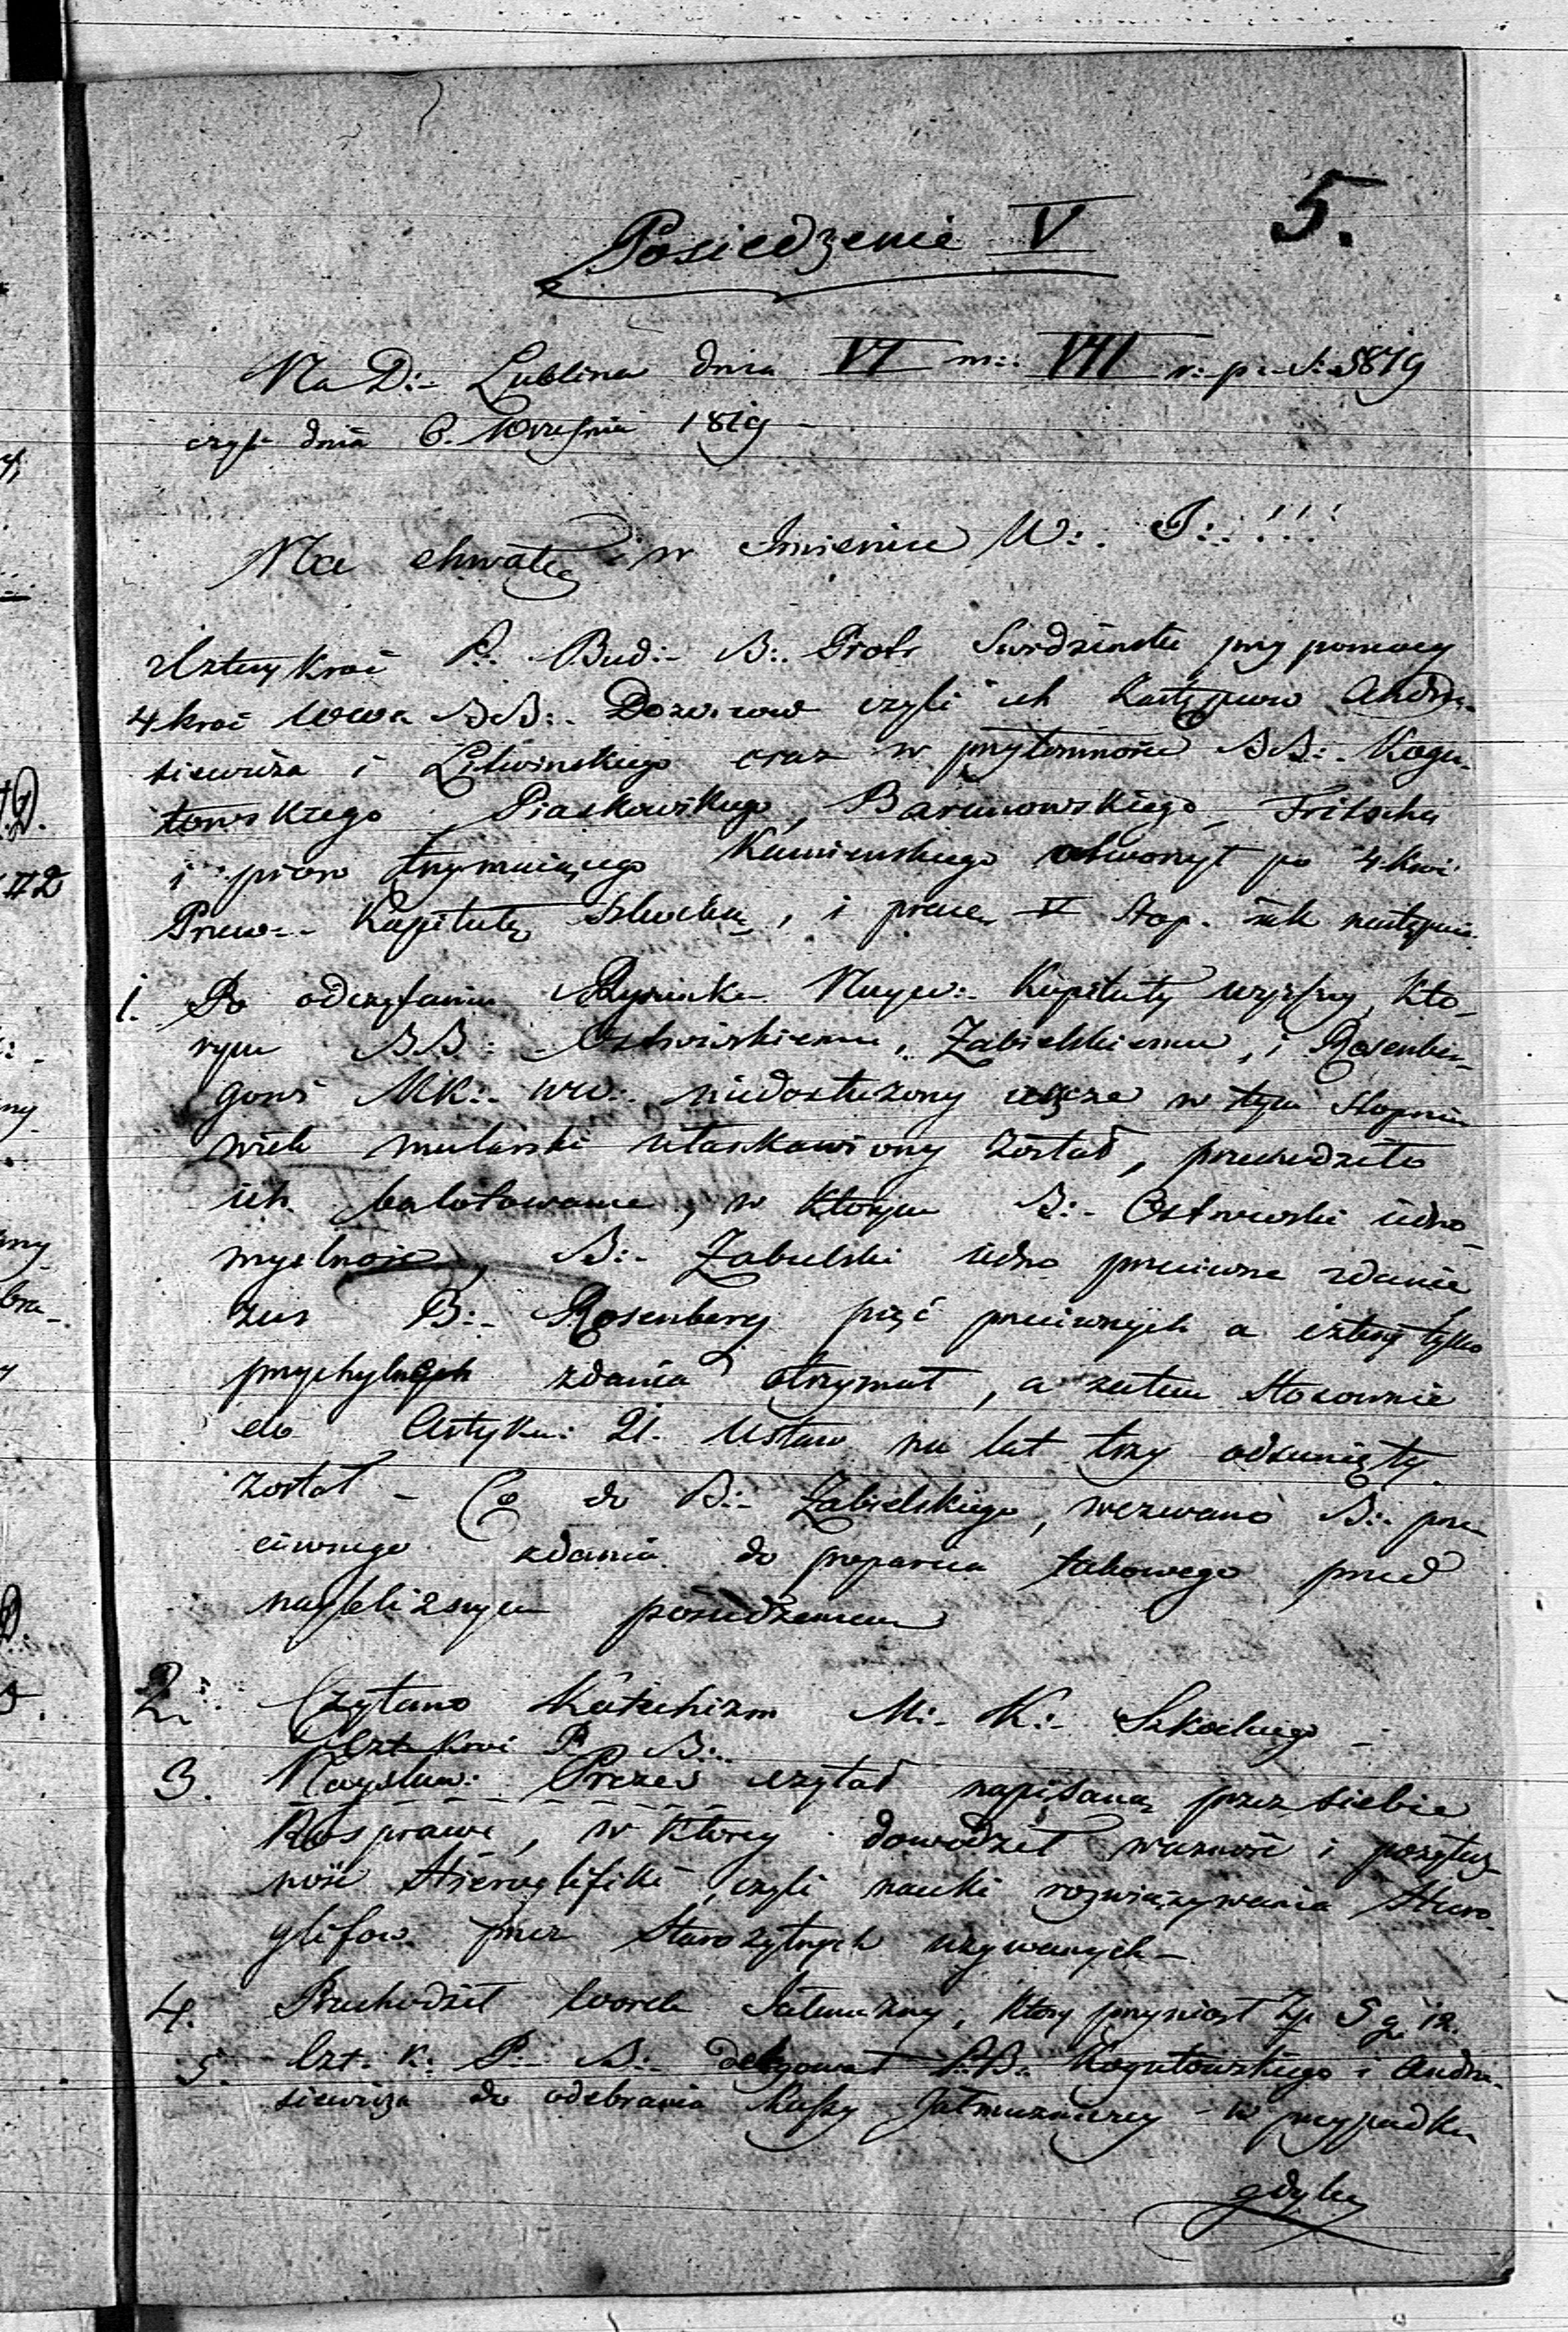 5.
Posiedzenie V
Na D:- Lublina dnia VI m:. VII r:. p:- S:- 5819
czyli dnia 6. Września 1819 -
Na chwałę i w Imieniu W:. J:. !!!
Cztery kroć P:. Bud:- B:. Piotr przy pomocy
4 kroć WWn BB:. Dozorcow czyli ich Zastępcow Andrze-
siewicza i Litwinskiego oraz w przytomności BB:. Kogu-
towskiego, Piaskowskiego, Barunowskiego, Fritscha
i pioro trzymaiącego Kamienskiego otworzył po 4 kroć
Przew:- Kapitułę Szkocką, i prace V Stop. iak następuie
1. Po odczytaniu Rysunku Nayw:- Kapituły wyższey, kto-
rym BB:. Ostrowskiemu, Zabielskiemu, i Rosenber-
gowi MK:. WW:. niedosłużony ieszcze w tym Stopniu
wiek mularski ułaskawiony został, poprzedziło
ich balotowanie, w którym B:- Ostrowski iedno-
myślność, B:- Zabielski iedno przeciwne zdanie
zaś B:- Rosenberg pięć przeciwnych a cztery tylko
przychylnych zdania otrzymał, a zatem Stosownie
do Artyku: 21. Ustaw na lat trzy odsunięty
został - Co do B:- Zabielskiego, wezwano B:- prze-
ciwnego zdania do poparcia takowego przed
naybliższym posiedzeniem
2. Czytano Katechizm M:- K:- Szkockiego -
Czte Kroć P. B:.
3. Prezes czytał napisaną przez siebie
Rosprawę, w którey dowodził ważność i pożytecz-
ność Hieroglifiki, czyli nauki rozwiązywania Hiero-
glifow przez Starożytnych używanych -
4. Przechodził worek Jałmużny, który przyniosł Zp 5 g 12.
5. Czt. K:. P:- B:- delegował BB:. Kogutowskiego i Andrze-
siewicza do odebrania Kassy Jałmużniczey - w przypadku
gdyby